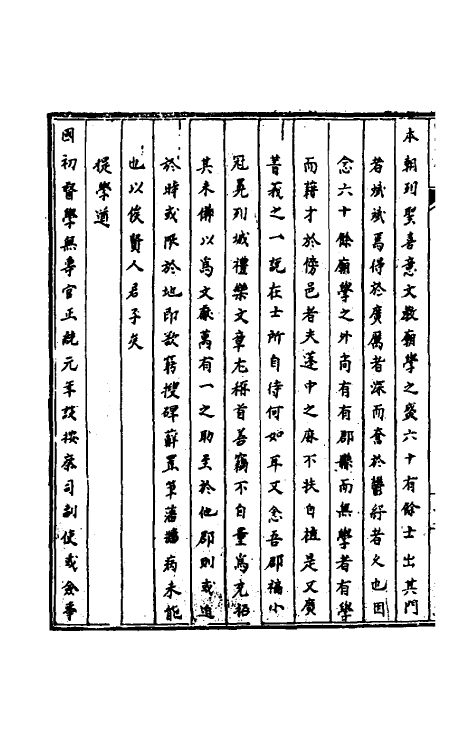 本朝列聖喜意文教廟學之盛六十有餘士出其門
者斌斌焉得於廣厲者深而奮於鬱紆者久也因
念六十餘廟學之外尚有有郡縣而無學者有學
而藉才於傍邑者夫蓬中之麻不扶自植是又廣
菁莪之一說在士所自待何如耳又念吾郡褊小
冠冕列城禮樂文章尤稱首善竊不自量為充拓
其未備以為文厫萬有一之助至於他郡則或迫
於時或限於地即欲窮搜碑蘚罣筆藩牆病未能
也以俟賢人君子矣
提學道
國初督學無專官正統元年設按察司副使或僉事